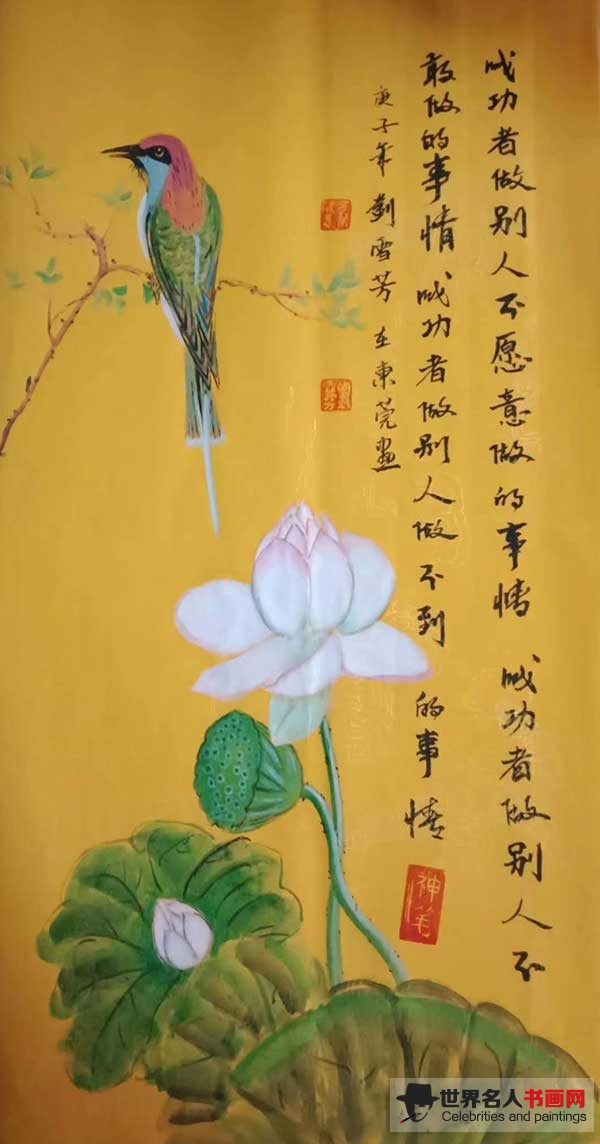 成功者做别人不愿意做的事情 成功者做别人不
敢做的事情成功者做别人做不到的事情
庚子年劉雪芳在東莞画
神笔
世界名人书画网
Celebrities and paintings